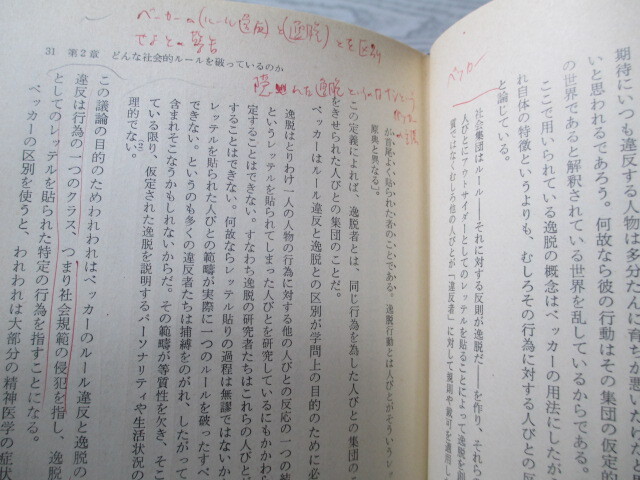 期待にいつも違反する人物は多分た人に育ちが悪いだけだ
いと思われるであろう。何故なら彼の行動はその集団の仮定的
の世界であると解釈されている世界を乱しているからである。
ここで用いられている逸脱の概念はベッカーの用法にしたが
れ自体の特徴というよりも、むしろその行為に対する人びとの反
と論じている。
ベッカー
社会集団はルール――それに対する反則が逸脱だ――を作り、それら
人びとにアウトサイダーとしてのレッテルを貼ることによって逸脱を創
質ではなくむしろ他の人びとが「違反者」に対して規則や裁可を適用し
31 第2章 どんな社会的ルールを破っているのか
ベッカーの(ルール違反)と(逸脱)とを区別
せよとの警告
が首尾よく貼られた者のことである。逸脱行動とは人びとがそういうレッ
原典と異なる」
この定義によれば、逸脱者とは、同じ行為を為した人びとの集団の
をきせられた人びとの集団のことだ。
ベッカーはルール違反と逸脱との区別が学問上の目的のために必
逸脱はとりわけ一人の人物の行為に対する他の人びとの反応の一つの結
というレッテルを貼られてしまった人びとを研究しているにもかかわら
定することはできない。すなわち逸脱の研究者たちはこれらの人びと
することはできない。何故ならレッテル貼りの過程は無謬ではないか
レッテルを貼られた人びとの範疇が実際に一つのルールを破ったすべ
できない。というのも多くの違反者たちは捕縛をのがれ、したがって
含まれそこなうかもしれないからだ。その範疇が等質性を欠き、
ている限り、仮定された逸脱を説明するパーソナリティや生活状況の
理的でない。
この議論の目的のためわれわれはベッカーのルール違反と逸脱との
違反は行為の一つのクラス、つまり社会規範の侵犯を指し、逸脱
としてのレッテルを貼られた特定の行為を指すことになる。
ベッカーの区別を使うと、われわれは大部分の精神医学の症状